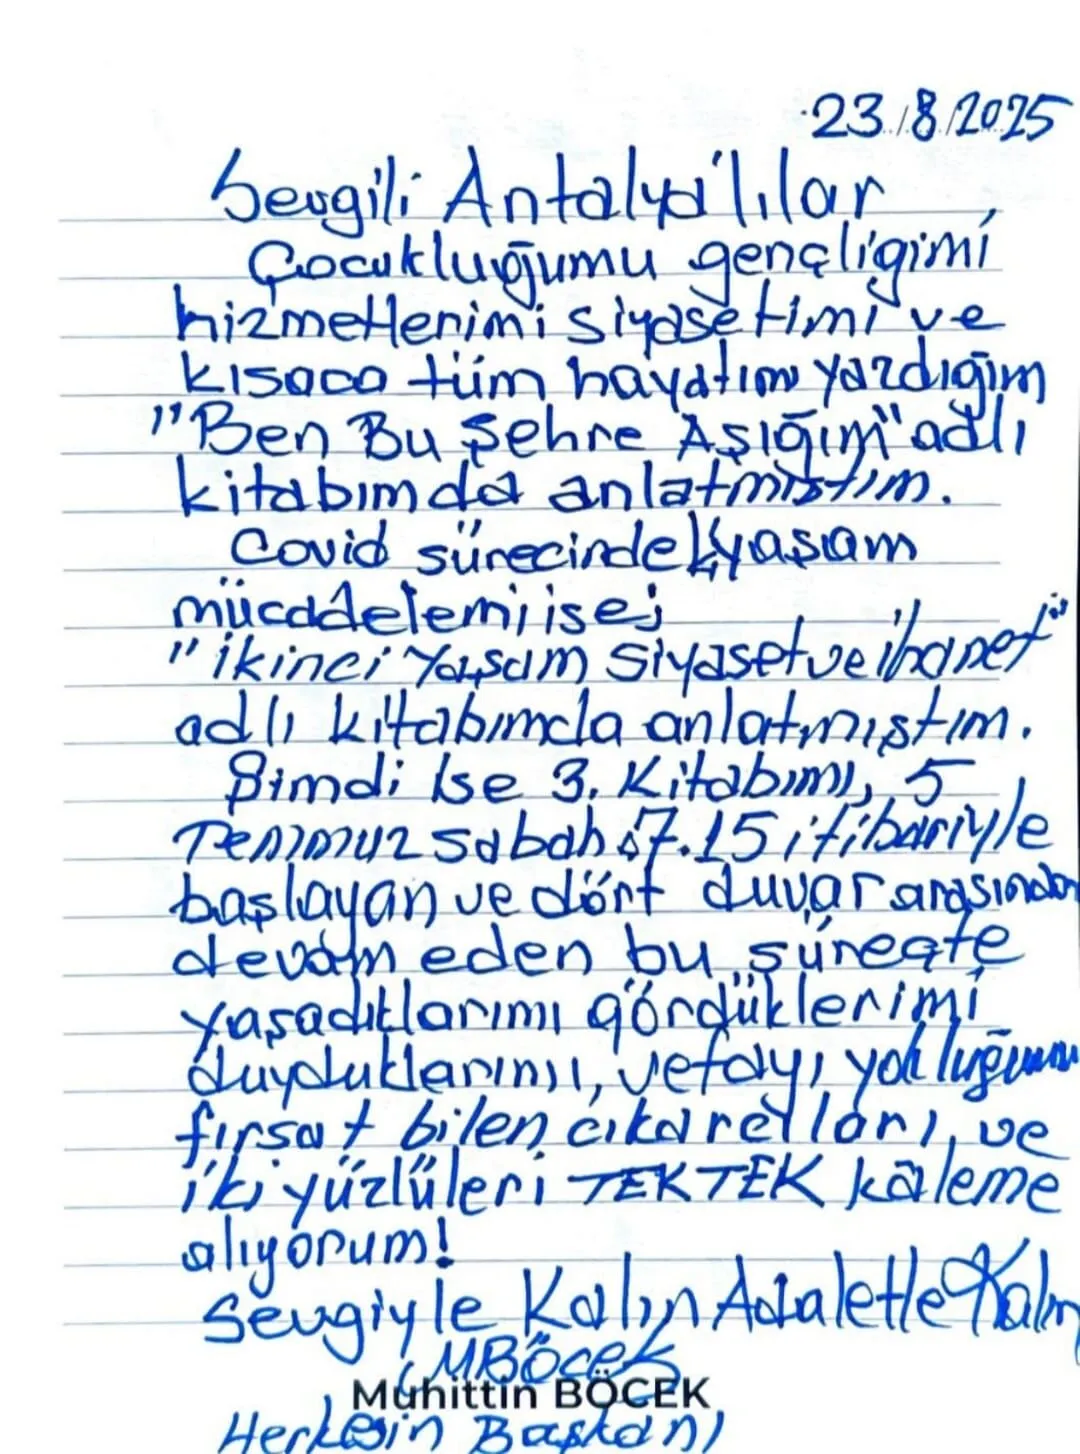 23/8/2025
Sevgili Antalya'lılar
Çocukluğumu gençliğimi,
hizmetlerimi siyasetimi ve
kısaca tüm hayatımı yazdığım
"Ben Bu Şehre Aşığım" adlı
kitabımda anlatmıştım.
Covid sürecindeki yaşam
mücadelemi ise;
"İkinci Yaşam Siyaset ve ihanet"
adlı kitabımda anlatmıştım.
Şimdi ise 3. Kitabımı, 5
Temmuz sabah 07.15 itibariyle
başlayan ve dört duvar arasında
devam eden bu süreçte
yaşadıklarımı gördüklerimi
duyduklarımı, vefayı yokluğumu
fırsat bilen çıkarcıları, ve
iki yüzlüleri TEK TEK kaleme
alıyorum!
Sevgiyle Kalın Adaletle Kalın
MBöcek
Muhittin BÖCEK
Herkesin Başkanı